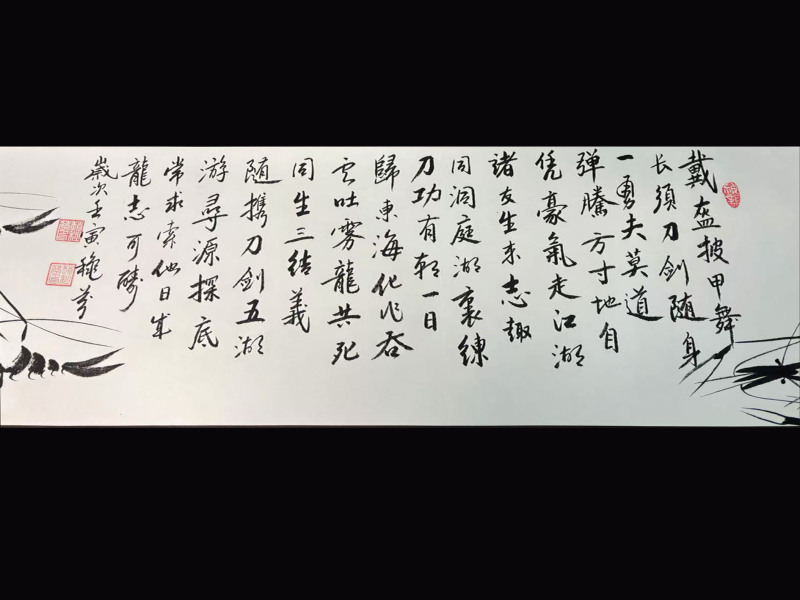 戴盔披甲舞
长须刀剑随身
一勇夫莫道
弹騰方寸地自
凭豪氣走江湖
諸友生来志趣
同洞庭湖裏練
刀功有朝一日
歸東海化作吞
云吐雾龍共死
同生三结義
随携刀剑五湖
游尋源探底
常求索他日成
龍志可酬
歲次壬寅穐